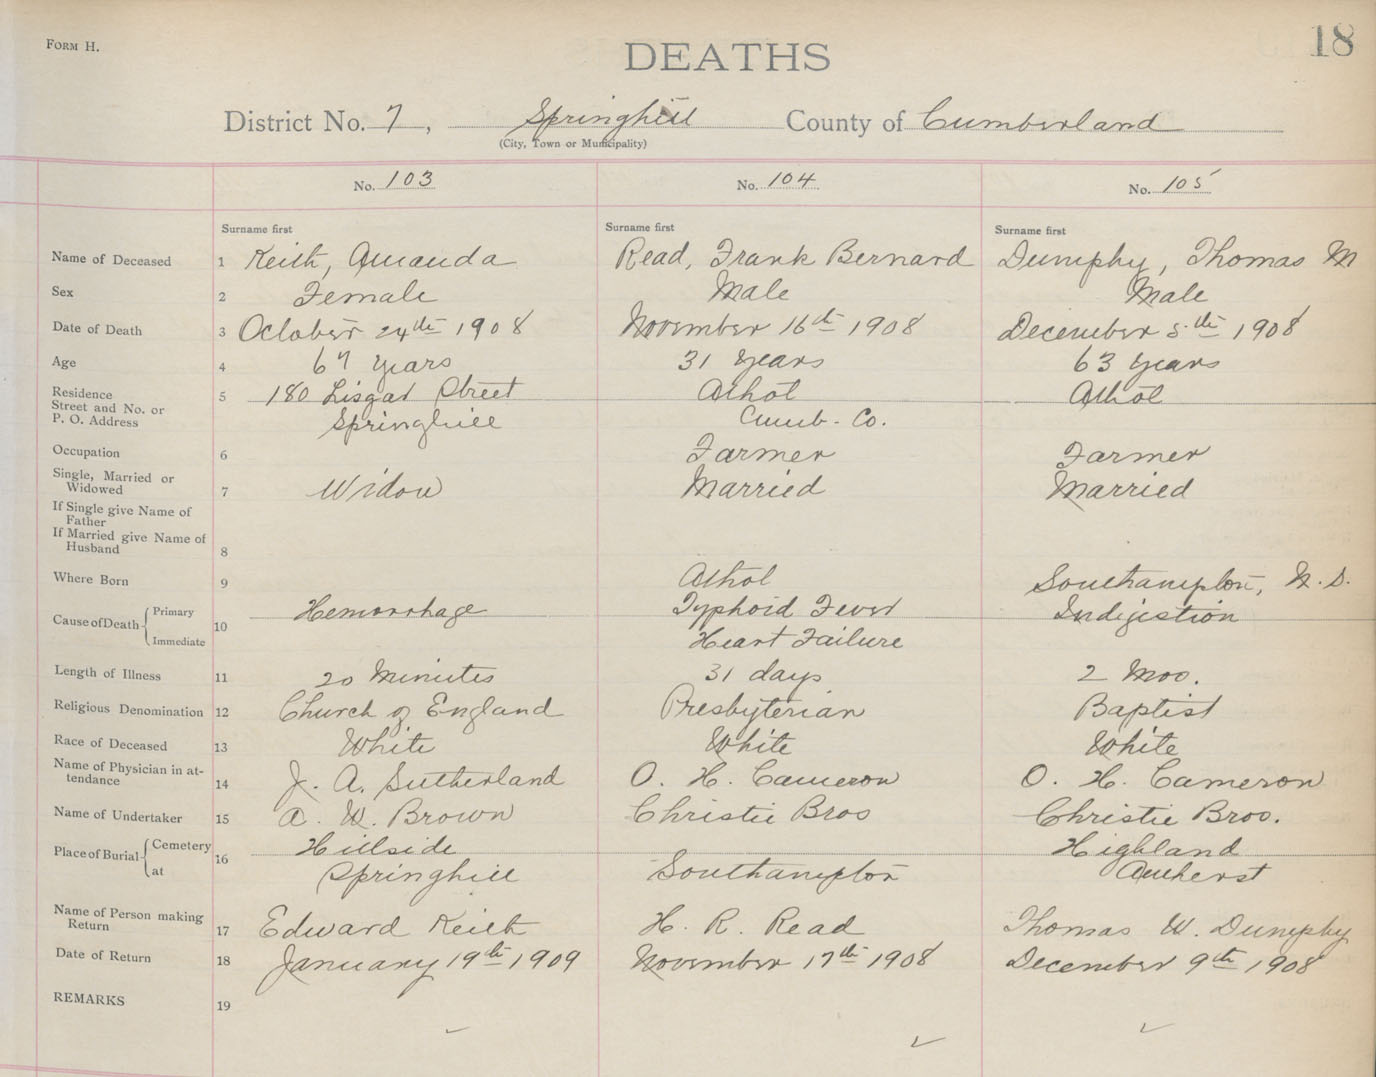 FORM H.
18
DEATHS
District No. 7, Springhill County of Cumberland
(City, Town or Municipality)
No. 103 No. 104 No. 105
Surname first Surname first Surname first
Name of Deceased 1 Keith, Amanda Read, Frank Bernard Dumphy, Thomas M
Sex 2 Female Male Male
Date of Death 3 October 24th 1908 November 16th 1908 December 5th 1908
Age 4 67 years 31 years 63 years
Residence 5 180 Lisgar Street Athol Athol
Street and No. or
P. O. Address Springhill Cumb. Co.
Occupation 6 Farmer Farmer
Single, Married or
Widowed 7 Widow Married Married
If Single give Name of
Father
If Married give Name of
Husband 8
Where Born 9 Athol Southampton, N.S.
Cause of Death Primary 10 Hemorrhage Typhoid Fever Indigestion
Immediate Heart Failure
Length of Illness 11 20 Minutes 31 days 2 Mos.
Religious Denomination 12 Church of England Presbyterian Baptist
Race of Deceased 13 White White White
Name of Physician in at-
tendance 14 J. A. Sutherland O. H. Cameron O. H. Cameron
Name of Undertaker 15 A. W. Brown Christie Bros Christie Bros.
Place of Burial Cemetery 16 Hillside Highland
at Springhill Southampton Amherst
Name of Person making
Return 17 Edward Keith H. R. Read Thomas W. Dumphy
Date of Return 18 January 19th 1909 November 17th 1908 December 9th 1908
REMARKS 19